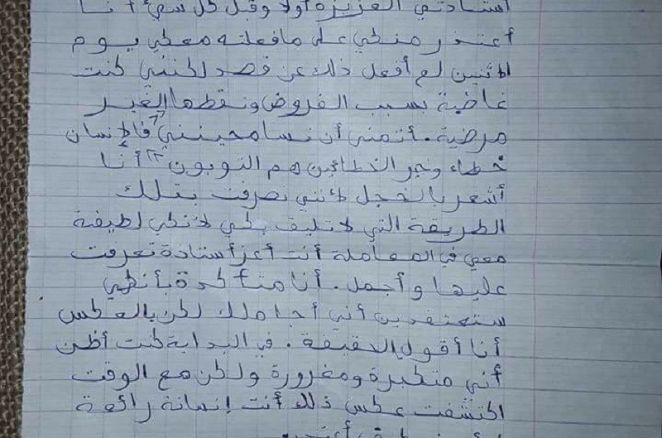 أستاذتي العزيزة أولا وقبل كل شيء أنا
أعتذر منكي على ما فعلته معكي يوم
الاثنين لم أفعل ذلك عن قصد لكنني كنت
غاضبة بسبب الفروض ونقطها الغير
مرضية. أتمنى أن تسامحينني "فالإنسان
خطاء وخير الخطائين هم التوبون" أنا
أشعر بالخجل لأنني تصرفت بتلك
الطريقة التي لا تليق بكي لانكي لطيفة
معي في المعاملة أنت أعز أستاذة تعرفت
عليها وأجمل. أنا متأكدة بأنكي
ستعتقدين أني أجاملك لكن بالعكس
أنا أقول الحقيقة. في البداية كنت أظن
أني متكبرة ومغرورة ولكن مع الوقت
اكتشفت عكس ذلك أنت إنسانة رائعة